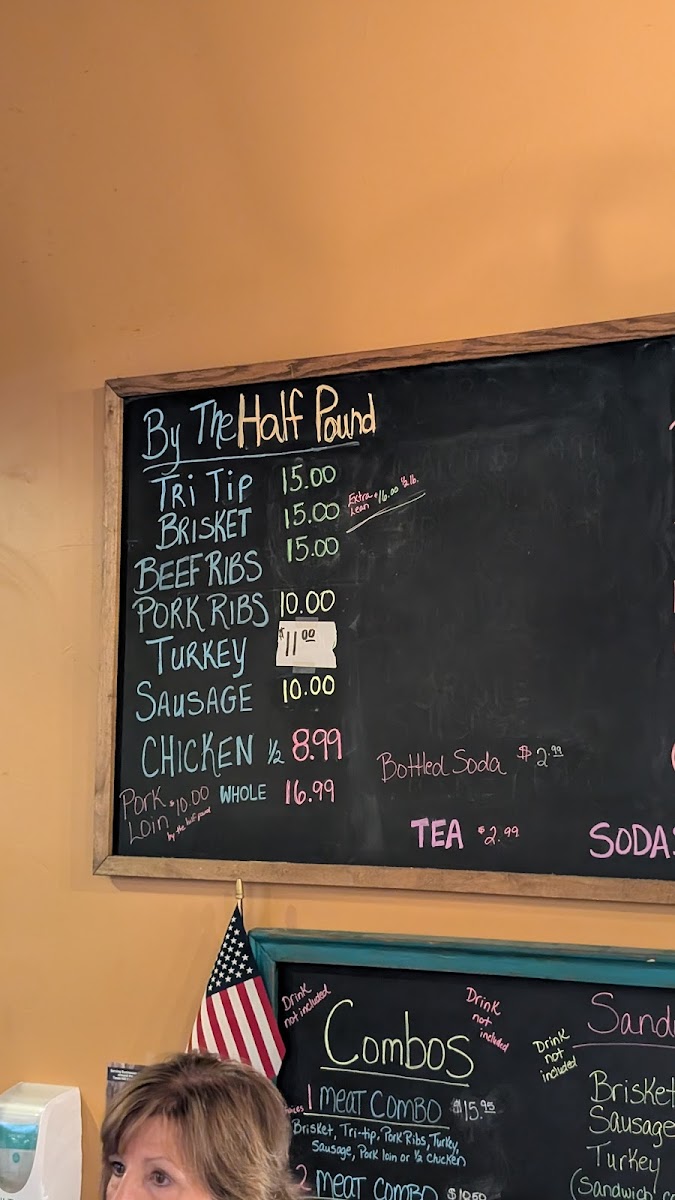 By The Half Pound
TRI TIP 15.00
BRISKET 15.00 Extra Lean $16.00 ½ lb.
BEEF RIBS 15.00
PORK RIBS 10.00
TURKEY $11.00
SAUSAGE 10.00
CHICKEN ½ 8.99
WHOLE 16.99
Pork Loin $10.00 by the half pound
Bottled Soda $2.99
TEA $2.99
SODAS
Drink not included
Combos
Drink not included
1 MEAT COMBO $15.95
Brisket, Tri-tip, Pork Ribs, Turkey,
Sausage, Pork loin or ½ chicken
2 MEAT COMBO
Drink not included
Sand
Brisket
Sausage
Turkey